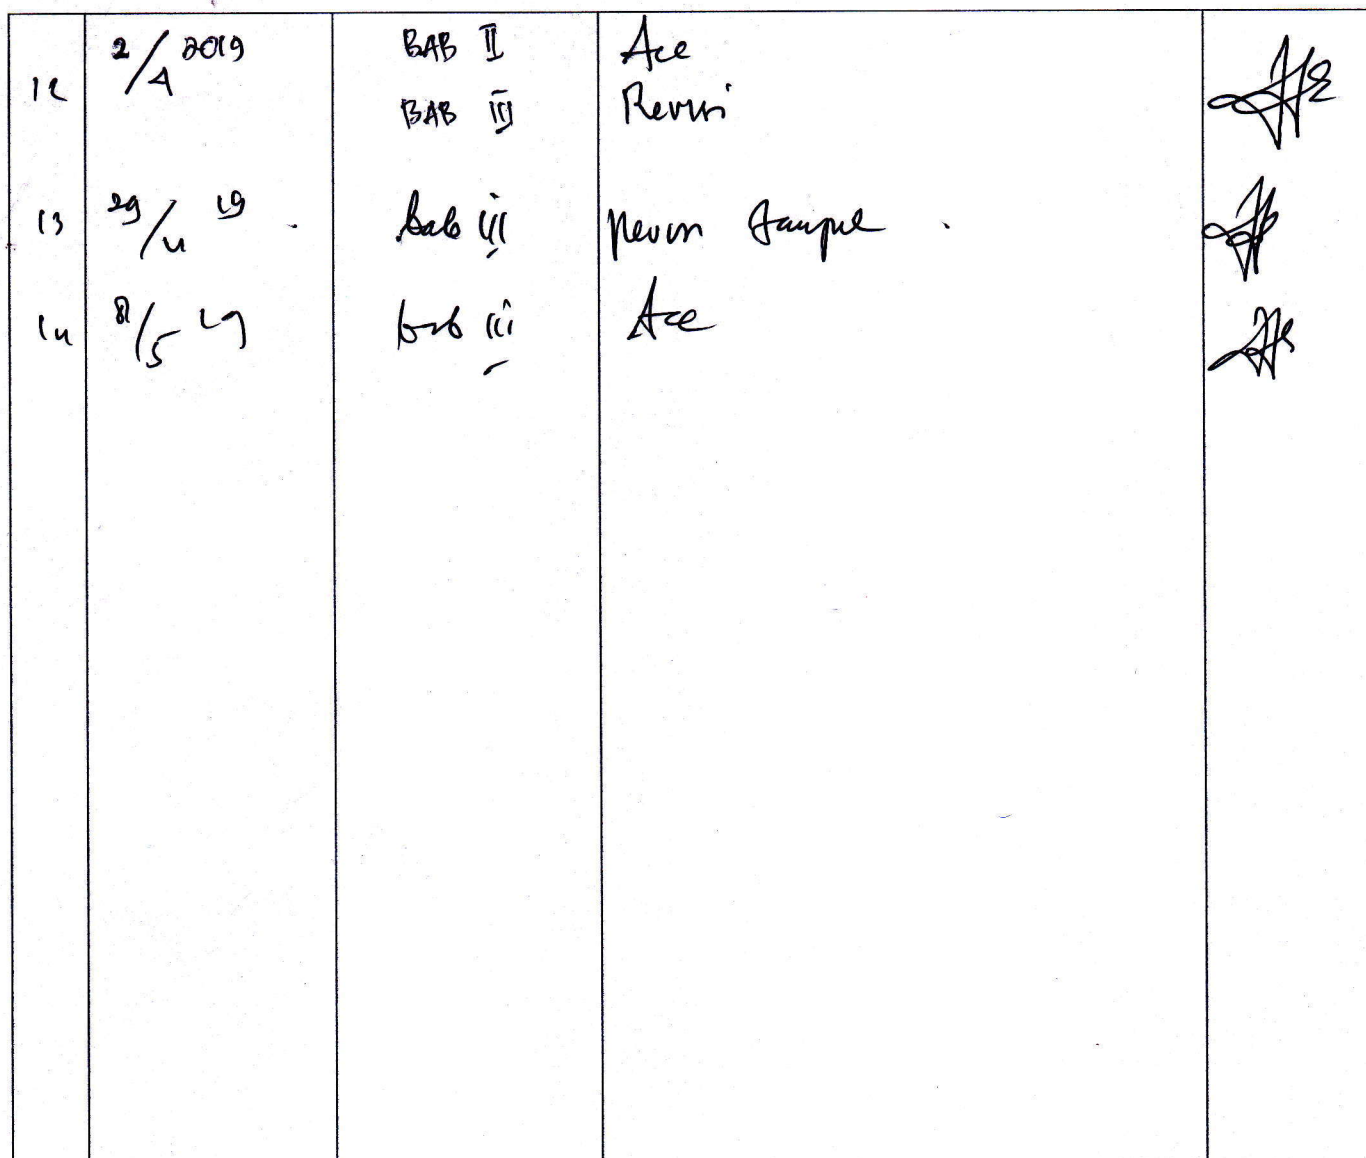 2/4 2019 BAB II Acc
12
BAB III Revisi
13 29/4 19 bab III Revisi Sampel
14 8/5 19 bab III Acc